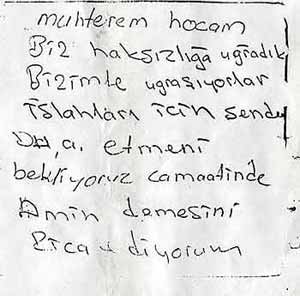 muhterem hocam
Biz haksızlığa uğradık
Bizimle ugrasıyorlar
ıslahları icin senden
Du,a, etmeni
bekliyoruz camaatinde
Amin demesini
Rica ediyorum